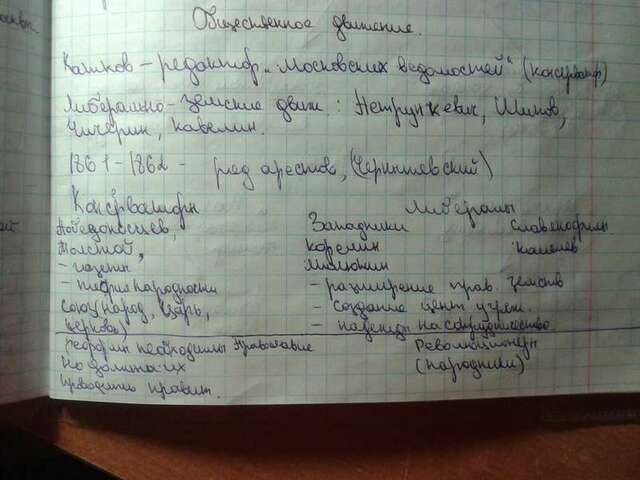 Общественное движение.
Катков – редактор "Московских ведомостей" (консерватор)
Либерально-земские движ.: Петрункевич, Шипов,
Чичерин, Кавелин.
1861-1862 - ряд арестов, (Чернышевский)
Консерваторы Либералы
Победоносцев, Западники Славянофилы
Толстой, Кавелин
- газеты Милютин
- теория народности - расширение прав. земств
союз народ, царь, - создание цент учреж.
церковь) - надежды на сотрудничество
реформы необходимы Православие Революционеры
но должна их (народники)
проводить правит.